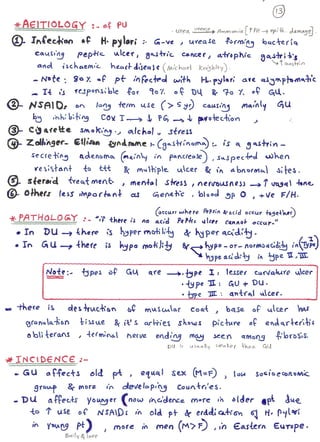 13
* AEITIOLOGY :- of PU
- urea → Ammonia [↑PH → epith. damage]
① Infection of H. pylori :- G-ve, urease forming bacteria
causing peptic ulcer, gastric cancer, atrophic gastritis
and ischaemic heart disease (Michael Knightly). ↑ gastrin
- Note: 80% of pt infected with H. pylori are asymptomatic
- It is responsible for 90% of DU & 70% of GU.
② NSAID, on long term use (> 5yr) causing mainly GU
by inhibiting COX I → ↓ PG → ↓ protection,
③ Cigarette smoking, alchol, stress
④ Zollinger-Ellison syndrome :- (gastrinoma) :- is a gastrin-
secreting adenoma (mainly in pancreas), suspected when
resistant to ttt & multiple ulcer & in abnormal sites.
⑤ Steroid treatment, mental stress, nervousness → ↑ vagal tone
⑥ Others less important as Genetic, blood gp O, +ve F/H.
* PATHOLOGY :- "if there is no acid Peptic ulcer cannot occur."
(occur where Pepsin & acid occur together)
• In DU → there is hyper motility & hyper acidity.
• In GU → there is hypo motility & → hypo-or-normoacidity in (Type I)
→ hyperacidity in type II, III
Note:- types of GU are → type I: lesser curvature ulcer
• type II: GU + DU.
• type III: antral ulcer.
- there is destruction of muscular coat, base of ulcer has
granulation tissue & it's artries shows picture of endarteritis
obliterans, terminal nerve ending may seen among fibrosis.
DU is usually smaller than GU
* INCIDENCE :-
- GU affects old pt, equal sex (M=F), low socioeconomic
group & more in developing countries.
- DU affects younger (now incidence more in older pt due
to ↑ use of NSAIDs in old pt & erddication of H. pylori
in young pt), more in men (M>F), in Eastern Europe.
Baily & love